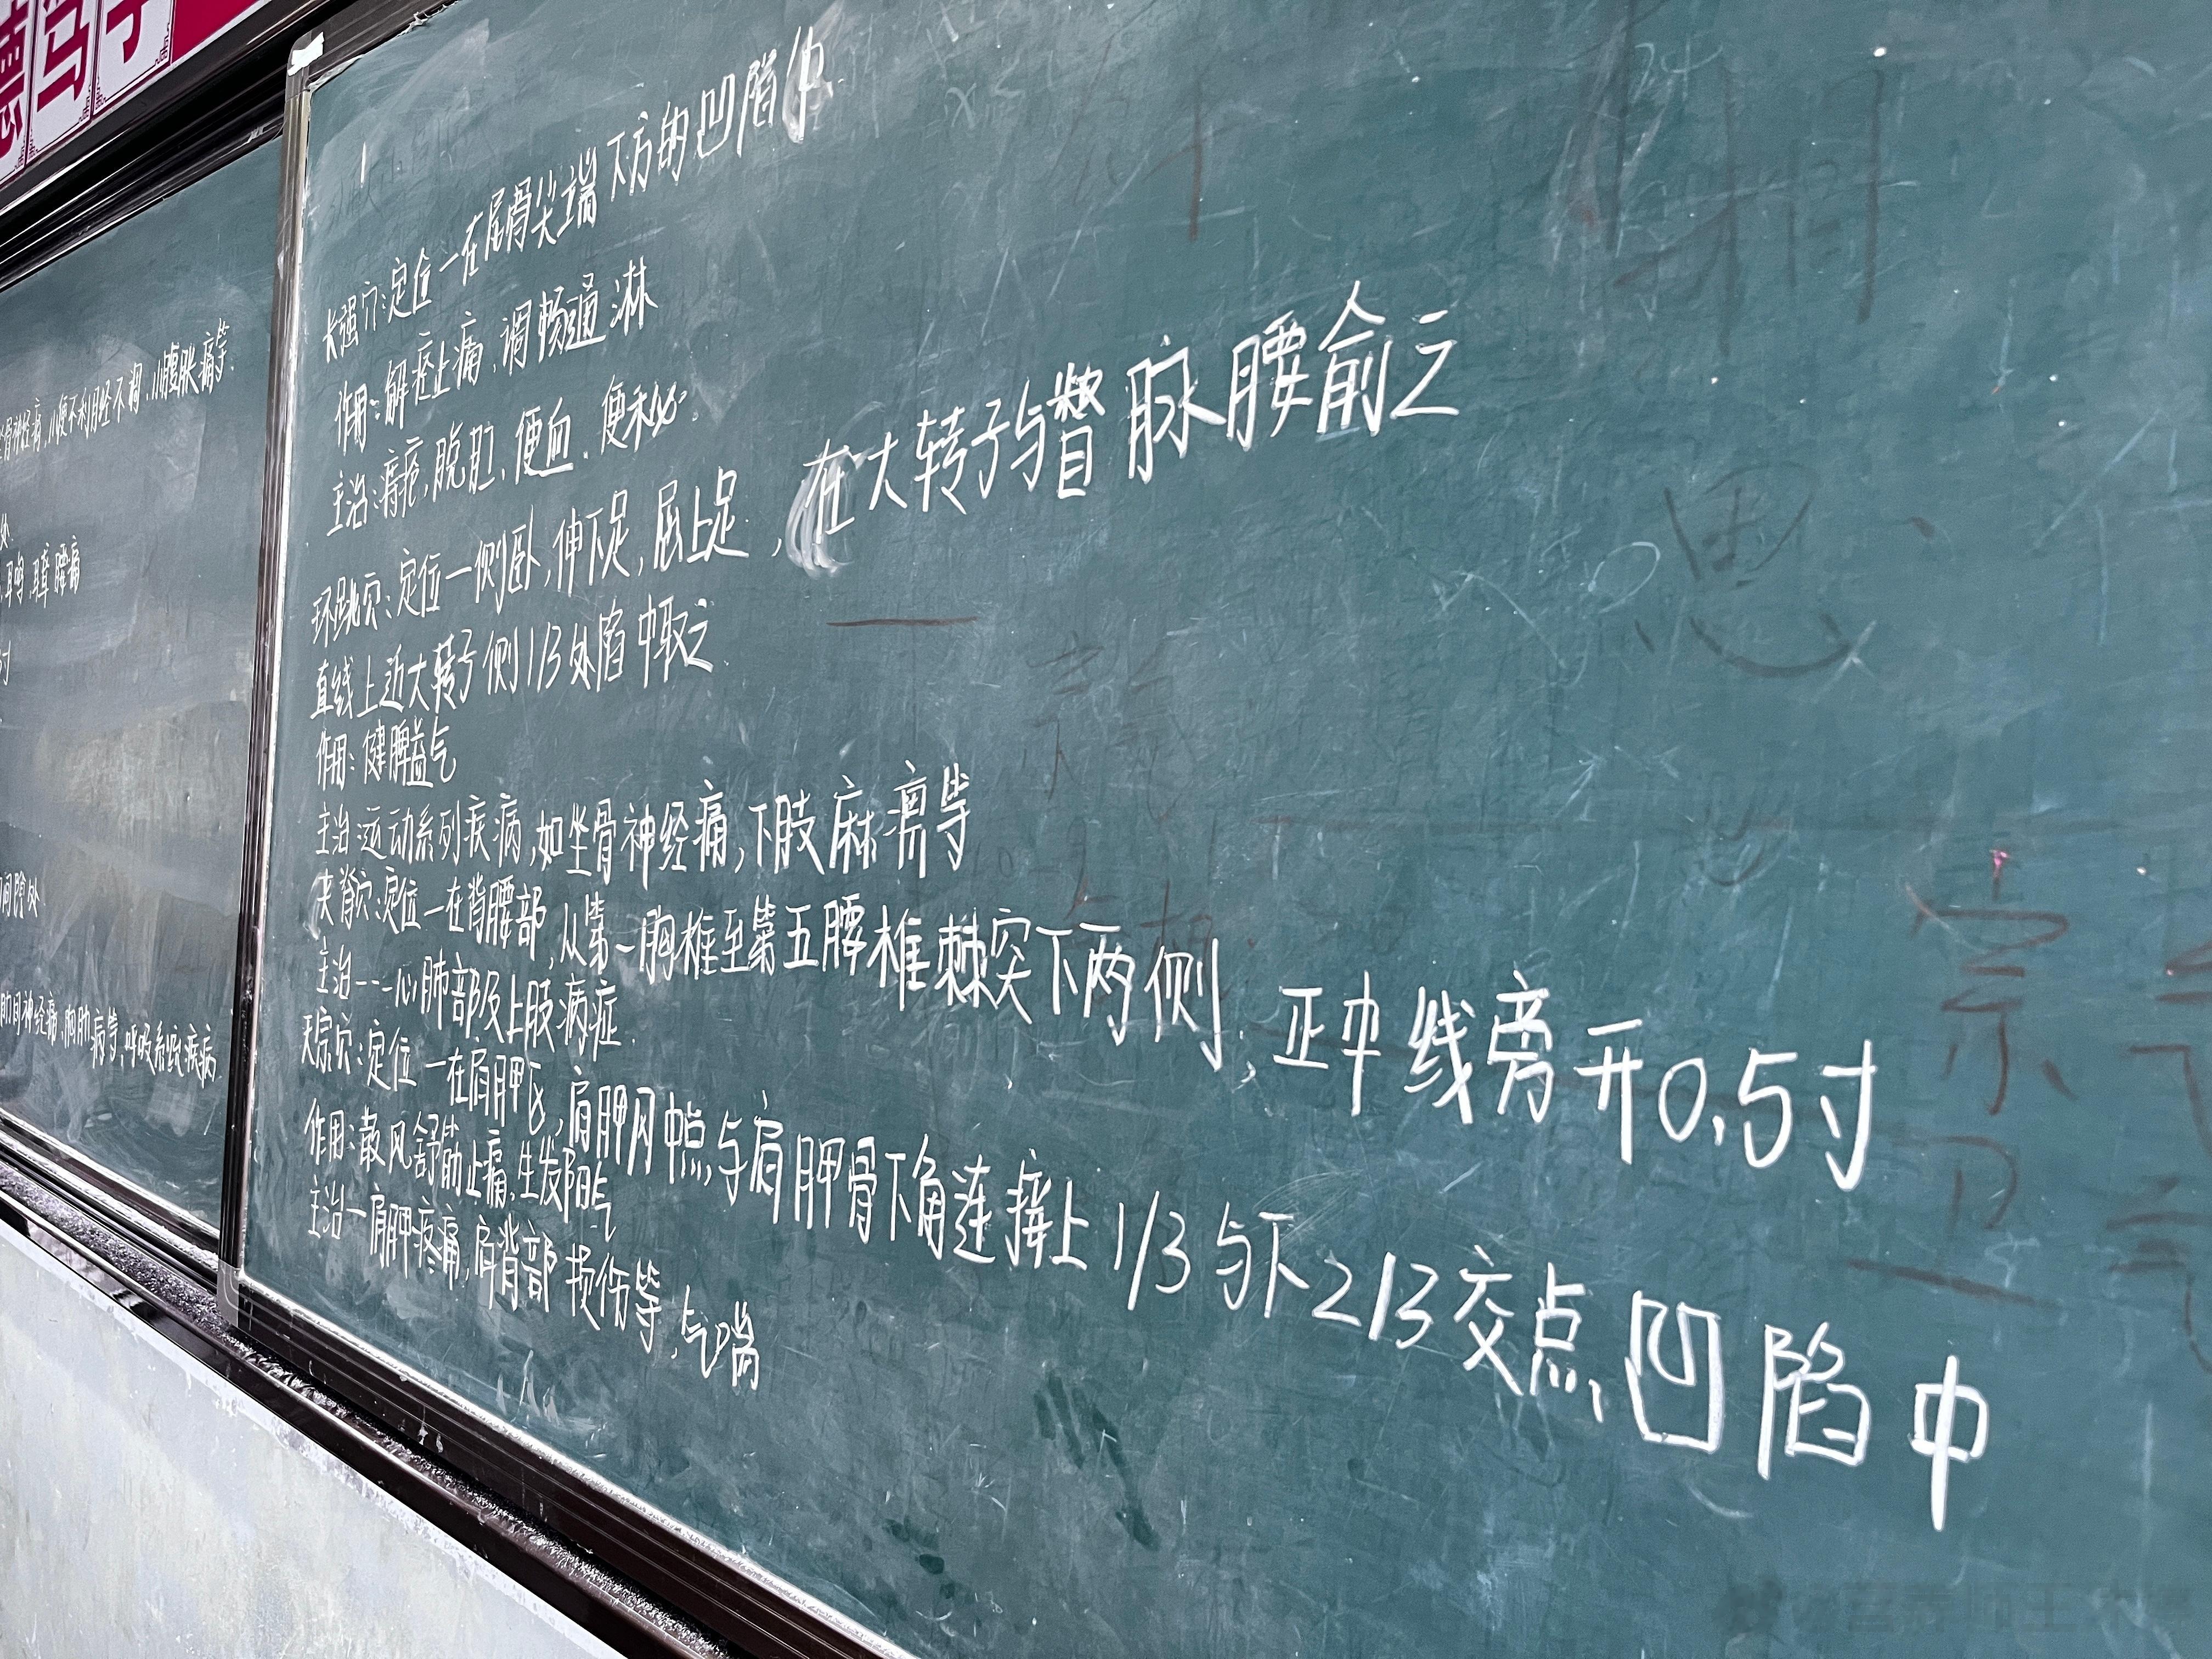 德
小便不利月经不调、小腹胀痛等.
处.
耳鸣.耳聋腰痛
寸
间隙处
肋间神经痛、胸肋病等,呼吸系统疾病
长强穴:定位一在尾骨尖端下方的凹陷中
作用:解痉止痛、调畅通淋
主治:痔疮,脱肛、便血、便秘.
环跳穴:定位一侧卧,伸下足,屈上足,在大转子与督脉腰俞之
直线上近大转子侧1/3处陷中取之
作用:健脾益气
主治:运动系列疾病,如坐骨神经痛,下肢麻痹等
夹脊穴:定位一在背腰部,从第一胸椎至第五腰椎棘突下两侧,正中线旁开0.5寸
主治---心肺部及上肢病症.
天宗穴:定位一在肩胛区,肩胛冈中点与肩胛骨下角连接上1/3与下2/3交点,凹陷中
作用:散风舒筋止痛、生发阳气
主治一肩胛疼痛,肩背部损伤等,气喘
思
宗
卫